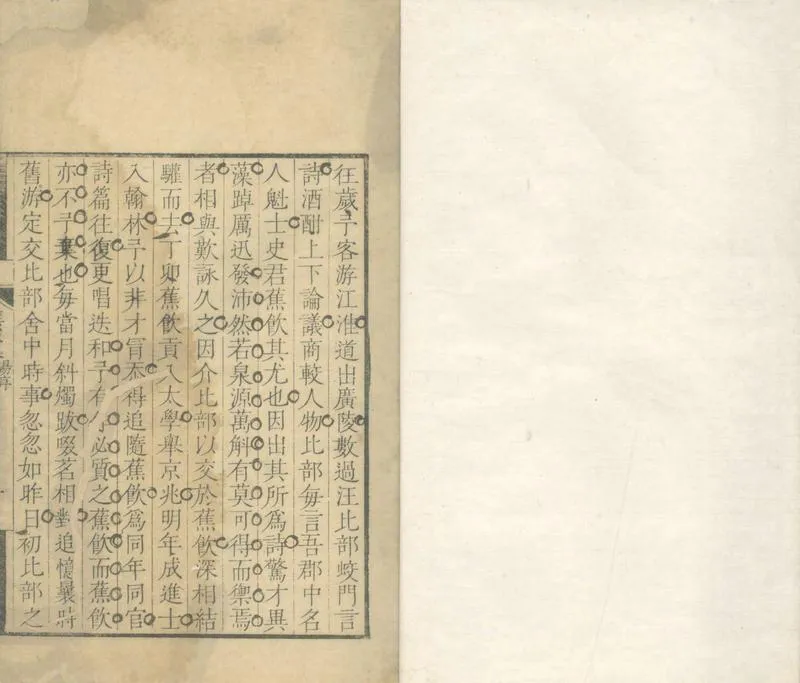 往歲予客游江淮道出廣陵數過汪比部蛟門言
詩酒酣上下論議商較人物比部每言吾郡中名
人魁士史君蕉飲其尤也因出其所爲詩驚才異
藻踔厲迅發沛然若泉源萬斛有莫可得而禦焉
者相與歎詠久之因介比部以交於蕉飲深相結
驩而去丁卯蕉飲貢入太學舉京兆明年成進士
入翰林予以非才冐忝得追隨蕉飲爲同年同官
詩篇往復更唱迭和予有作必質之蕉飲而蕉飲
亦不予棄也每當月斜燭跋啜茗相對追憶曩時
舊游定交比部舍中時事忽忽如昨日初比部之